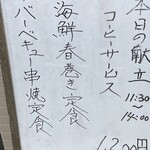 本日の献立
11:30
14:00
コーヒーサービス
海鮮春巻き定食
バーベキュー串焼定食
1,200円